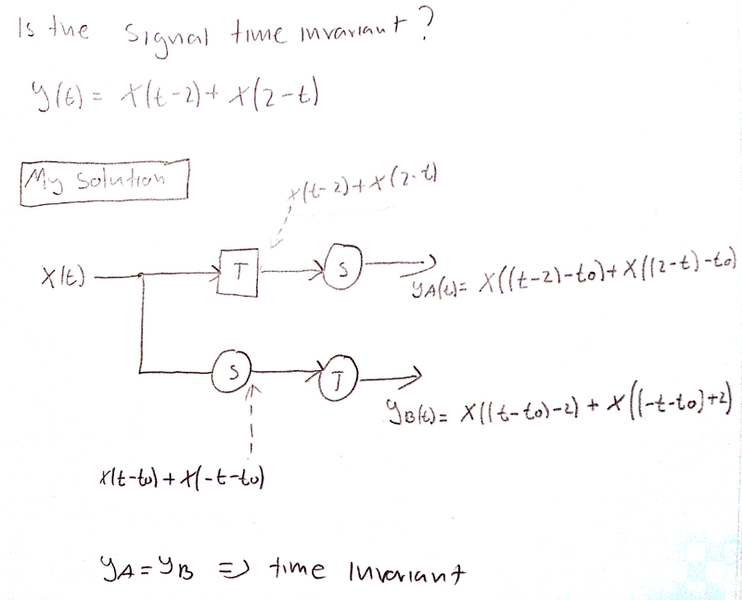 Is the signal time invariant?
y(t) = x(t-2) + x(2-t)
My Solution
x(t-2) + x(2-t)
x(t)
T
S
yA(t) = x((t-2)-to) + x((2-t)-to)
S
T
yB(t) = x((t-to)-2) + x((-t-to)+2)
x(t-to) + x(-t-to)
yA = yB => time invariant